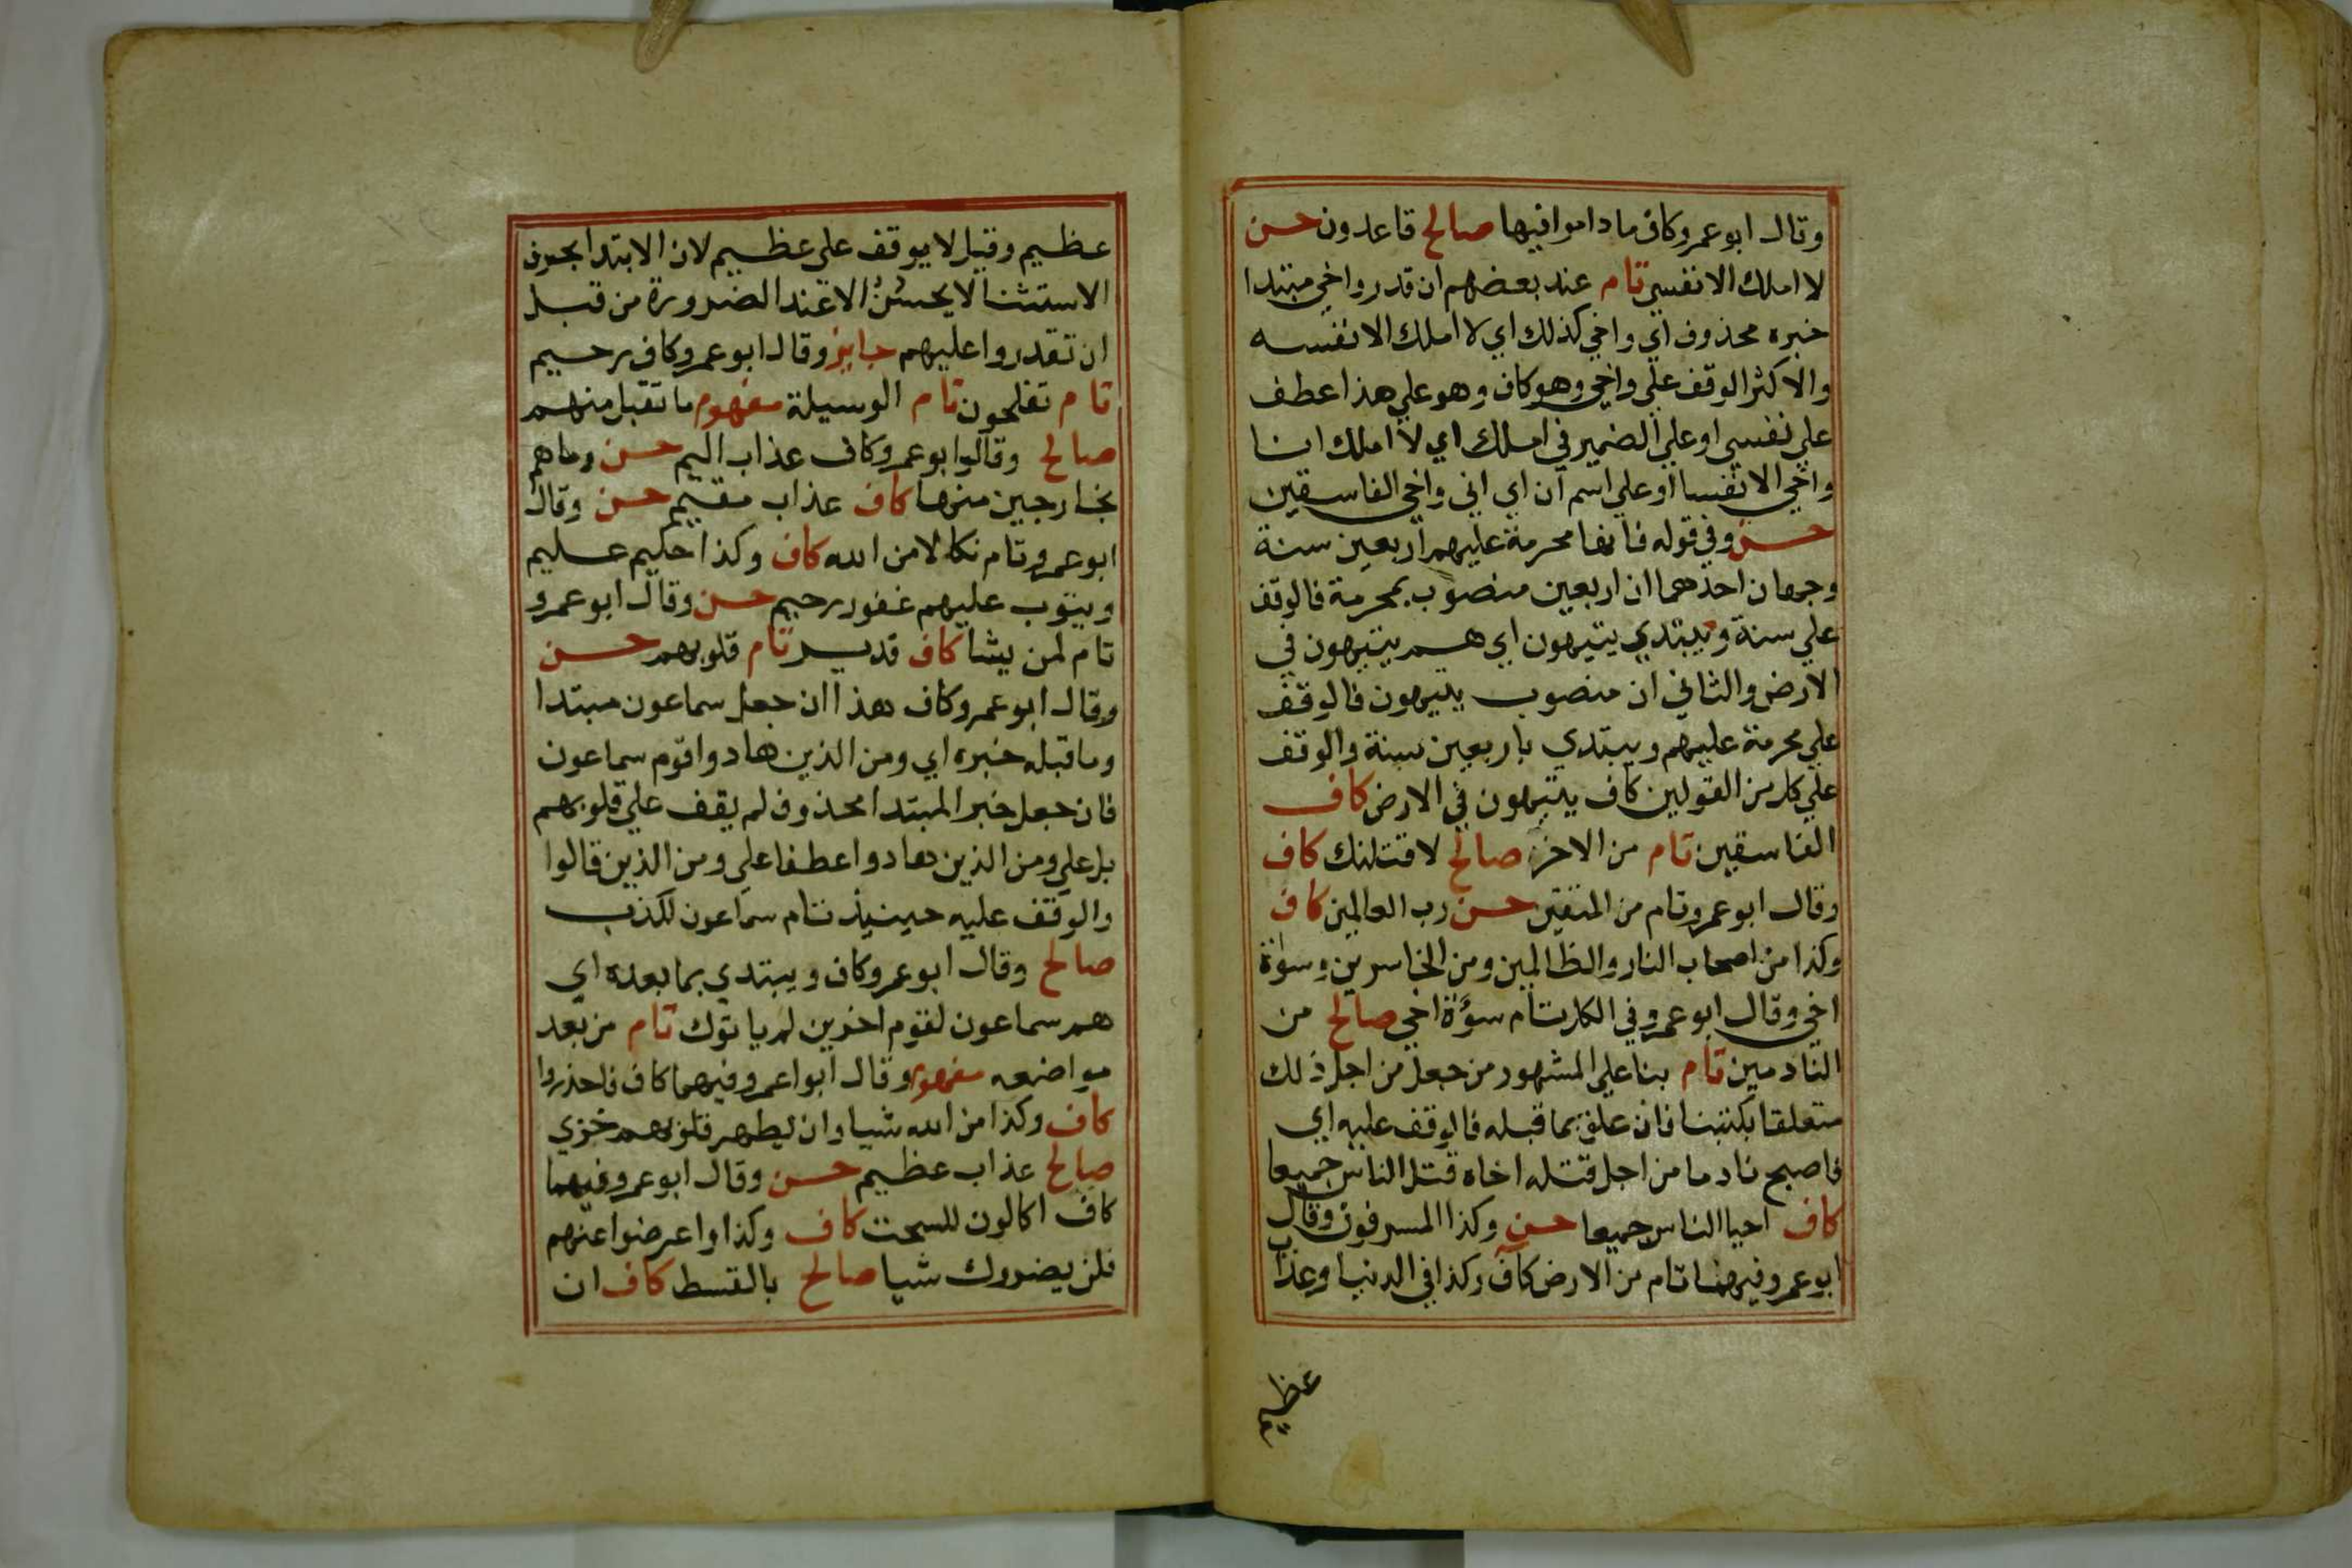 وقال ابو عمرو كاف ما داموا فيها صالح قاعدون حسن
لا املك الا نفسي تام عند بعضهم ان قدر واخي مبتدا
خبره محذوف اي واخي كذلك اي لا املك الا نفسه
والاكثر الوقف علي واخي وهو كاف وهو علي هذا عطف
علي نفسي او علي الضمير في املك اي لا املك انا
واخي الا نفسا او علي اسم ان اي اني واخي الفاسقين
حسن وفي قوله فانها محرمة عليهم اربعين سنة
وجهان احدهما ان اربعين منصوب بمحرمة فالوقف
علي سنة ويبتدي يتيهون اي هم يتيهون في
الارض والثاني ان منصوب يتيهون فالوقف
علي محرمة عليهم ويبتدي باربعين سنة والوقف
علي كل من القولين كاف يتيهون في الارض كاف
الفاسقين تام من الاخر صالح لاقتلنك كاف
وقال ابو عمرو تام من المتقين حسن رب العالمين كاف
وكذا من اصحاب النار والظالمين ومن الخاسرين وسوٰة
اخي وقال ابو عمرو في الكل تام سوٰة اخي صالح من
النادمين تام بنا علي المشهور من جعل من اجل ذلك
متعلقا بكتبنا فان علق بما قبله فالوقف عليه اي
فاصبح نادما من اجل قتله اخاه قتل الناس جميعا
كاف احيا الناس جميعا حسن وكذا المسرفون وقال
ابو عمرو فيهما تام من الارض كاف وكذا في الدنيا وعذاب
عظيم
عظيم وقيل لا يوقف علي عظيم لان الابتدا بحرف
الاستثنا لا يحسُنُ الا عند الضرورة من قبل
ان تقدروا عليهم جايز وقال ابو عمرو كاف رحيم
تام تفلحون تام الوسيلة مفهوم ما تقبل منهم
صالح وقالوا ابو عمرو كاف عذاب اليم حسن وما هم
بخارجين منها كاف عذاب مقيم حسن وقال
ابو عمرو تام نكالا من الله كاف وكذا حكيم عليم
ويتوب عليهم غفور رحيم حسن وقال ابو عمرو
تام لمن يشا كاف قدير تام قلوبهم حسن
وقال ابو عمرو كاف هذا ان جعل سماعون مبتدا
وما قبله خبره اي ومن الذين هادوا قوم سماعون
فان جعل خبر المبتدا محذوف لم يقف علي قلوبهم
بل علي ومن الذين هادوا عطفا علي ومن الذين قالوا
والوقف عليه حينيذ تام سماعون للكذب
صالح وقال ابو عمرو كاف ويبتدي بما بعده اي
هم سماعون لقوم اخرين لم ياتوك تام من بعد
مواضعه مفهوم وقال ابوا عمرو فيهما كاف فاحذروا
كاف وكذا من الله شيا وان يطهر قلوبهم خزي
صالح عذاب عظيم حسن وقال ابو عمرو فيهما
كاف اكالون للسحت كاف وكذا واعرضوا عنهم
فلن يضروك شيا صالح بالقسط كاف ان